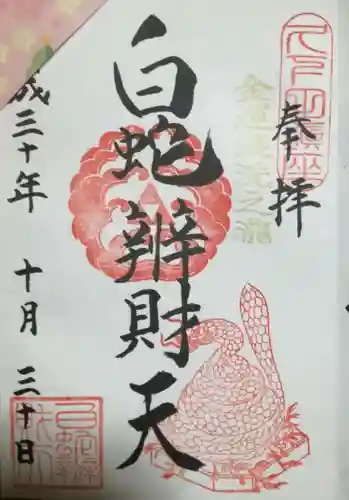 奉拝
金運洗之瀧
白蛇辨財天
成三十年 十月 三十日